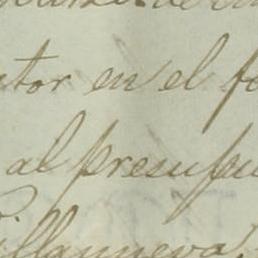 ator en el fo
al presupu
illanueva